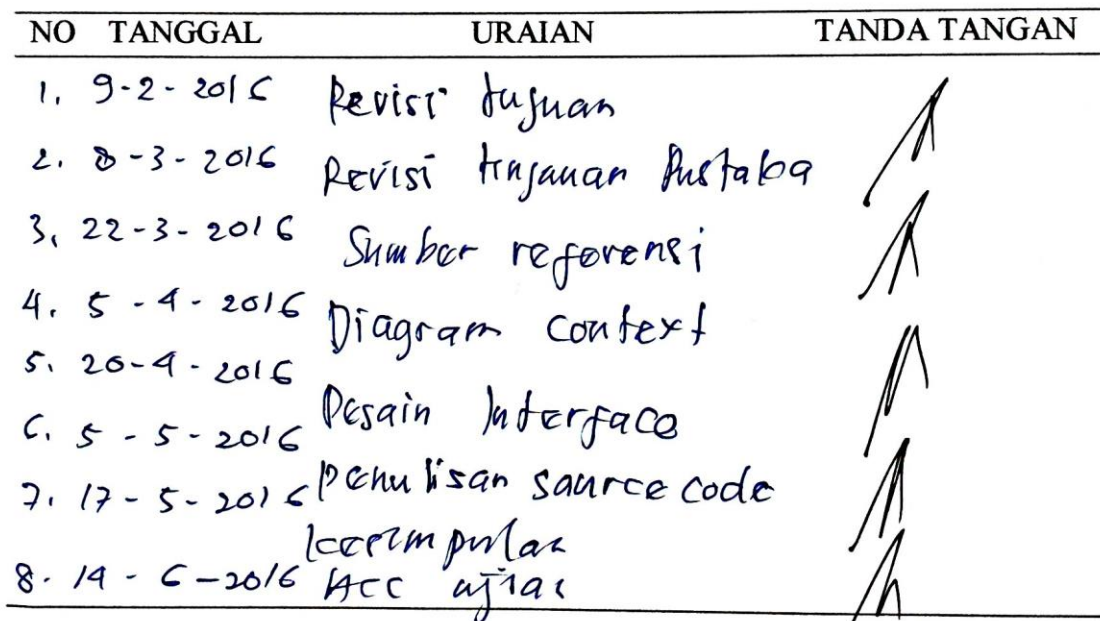 NO TANGGAL URAIAN TANDA TANGAN
1. 9-2-2016 Revisi tujuan
2. 8-3-2016 Revisi tinjauan Pustaka
3. 22-3-2016 Sumber referensi
4. 5-4-2016 Diagram context
5. 20-4-2016 Desain Interface
6. 5-5-2016 Penulisan source code
7. 17-5-2016 kesimpulan
8. 14-6-2016 ACC ujian